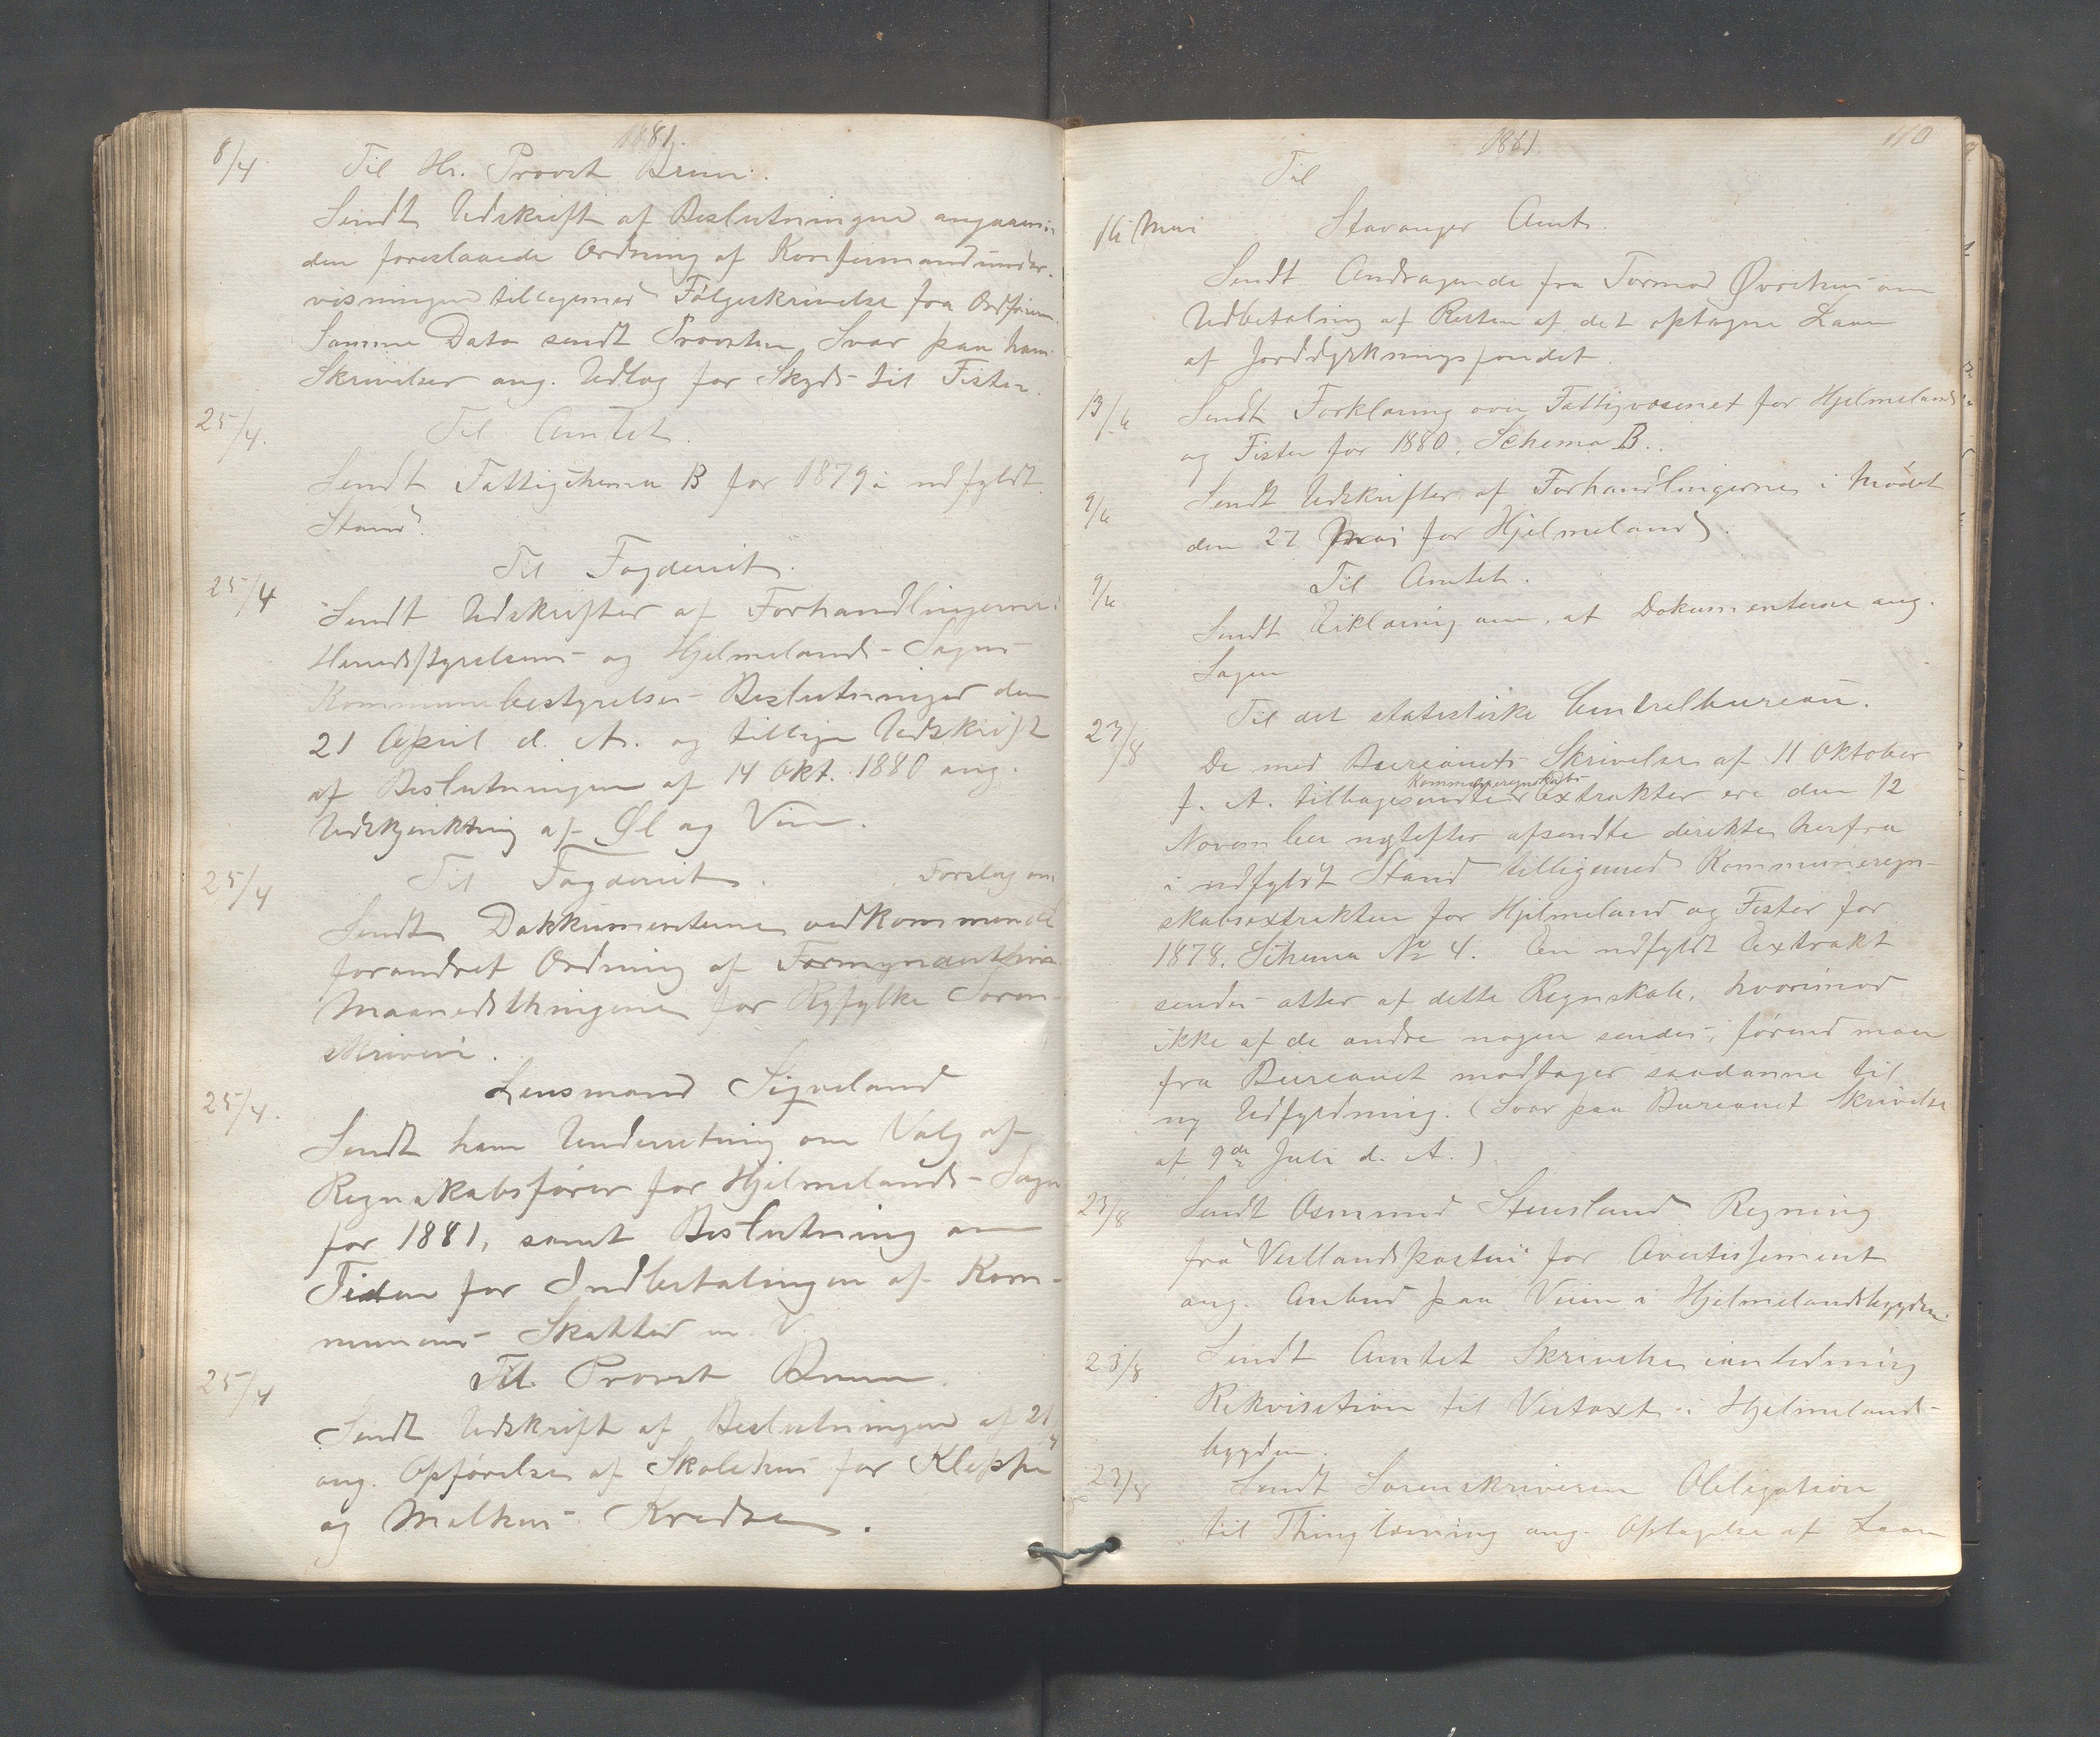 1881.
8/4 Til Hr. Provst Brun.
Sendt Udskrift af Beslutningen angaaen
den foreslaaede Ordning af Konfirmandunder-
visningen tilligemed Følgeskrivelse fra Ordfører.
Samme Dato sendt Provsten Svar paa hans
Skrivelser ang. Udlæg for Skyds til Fister.
25/4. Til Amtet.
Sendt Fattigschema B for 1879 i udfyldt
Stand.
25/4 Til Fogderiet.
Sendt Udskrifter af Forhandlingerne i
Herredsstyrelsens og Hjelmelands-Sogns
Kommunebestyrelses Beslutninger den
21 April d. A. og tillige Udskrift
af Beslutningen af 14 Okt. 1880 ang.
Udskjenkning af Øl og Vin.
25/4 Til Fogderiet. Forslag om
Sendt Dokkumenterne vedkommende
forandret Ordning af
Maanedsthingene for Ryfylke Soren-
skriveri.
25/4. Lensmand Sigveland
Sendt ham Underretning om Valg af
Regnskabsfører for Hjelmelands-Sogn
for 1881, samt Beslutning om
Tiden for Indbetalingen af Kom-
munens Skatter m. V.
25/4 Til Provst Brun.
Sendt Udskrift af Beslutningen af 21/4
ang. Opførelse af Skolehus for Kleppe
og Mælhus Kredse.
1881. 110
Til
16 Mai Stavanger Amt.
Sendt Andragende fra Tormod Øvrehus om
Udbetaling af Resten af det optagne Laan
af Jorddyrkningsfondet.
13/6 Sendt Forklaring over Fattigvæsenet for Hjelmeland
og Fister for 1880. Schema B.
9/6 Sendt Udskrifter af Forhandlingerne i Mødet
den 27 Mai for Hjelmeland.
9/6 Til Amtet.
Sendt Erklæring om, at Dokumenterne ang.
Sagen
Til det statistiske Centralbureau.
23/8 De med Bureauets Skrivelse af 11 Oktober
Kommuneregnskabs-
f. A. tilbagesendte Extrakter ere den 12
November næstefter afsendte direkte herfra
i udfyldt Stand tilligemed Kommuneregn-
skabsextrakten for Hjelmeland og Fister for
1878. Schema № 4. En udfyldt Extrakt
sendes atter af dette Regnskab, hvorimod
ikke af de andre nogen sendes, førend man
fra Bureauet modtager saadanne til
ny Udfyldning. (Svar paa Bureauet Skrivelse
af 9de Juli d. A.)
23/8 Sendt Osmund Stensland Regning
fra Vestlandsposten for Avertissement
ang. Anbud paa Veien i Hjelmelandsbygden.
23/8 Sendt Amtet Skrivelse ianledning
Rekvisition til Veitaxt i Hjelmeland-
bygden.
23/8 Sendt Sorenskriveren Obligation
til Thinglæsning ang. Optagelse af Laan